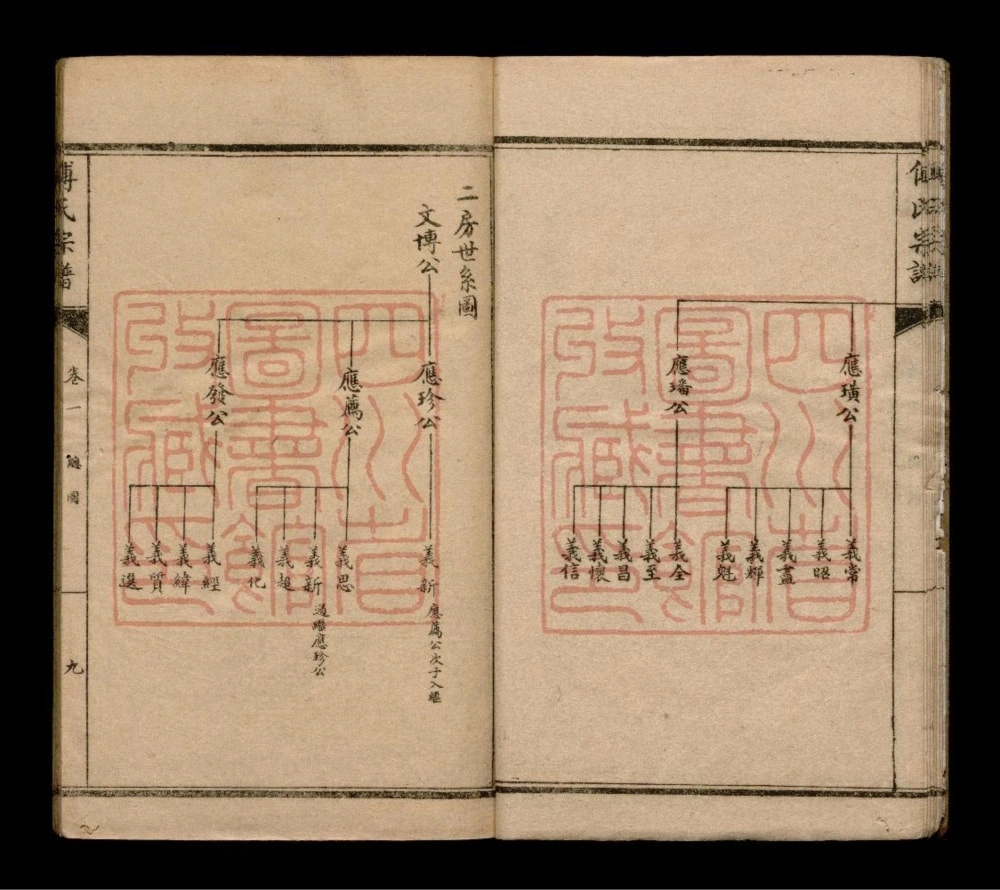 傅氏宗譜
應璜公
義常
義昭
義晝
義輝
義魁
應璠公
義全
義至
義昌
義懷
義信
二房世系圖
文博公
應珍公
義新
應薦公次子入繼
應薦公
義思
義新
過繼應珍公
義超
義化
應發公
義經
義緯
義質
義選
傅氏宗譜
卷一
總圖
九
四川省
圖書館
收藏印